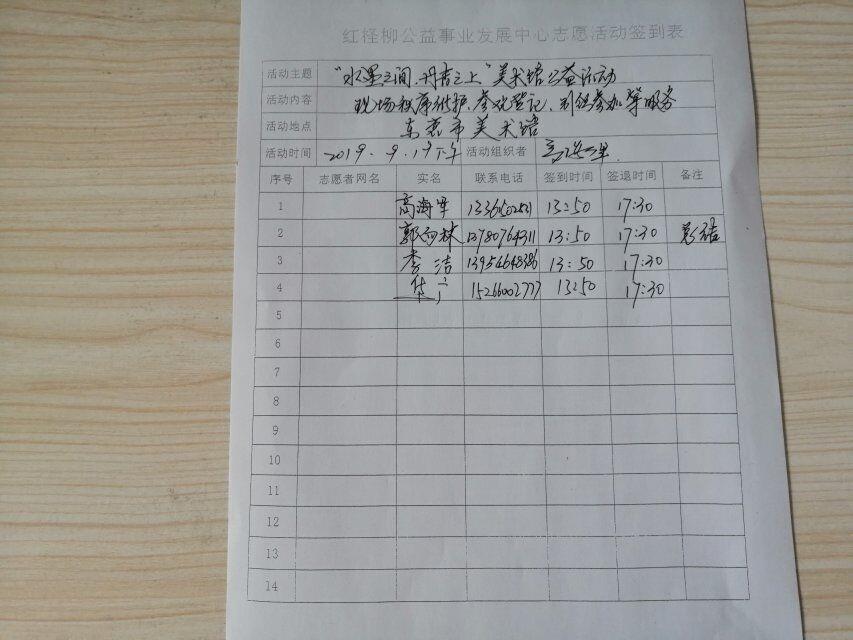 红柽柳公益事业发展中心志愿活动签到表
活动主题 "水墨之间.丹青之上"美术馆公益活动
活动内容 现场秩序维护、参观登记、引领参加等服务
活动地点 东营市美术馆
活动时间 2019.9.19下午 活动组织者 高海军
序号 志愿者网名 实名 联系电话 签到时间 签退时间 备注
1 高海军 13:50 17:30
2 13780764311 13:50 17:30
3 李洁 13954648386 13:50 17:30
4 华广 15266002777 13:50 17:30
5
6
7
8
9
10
11
12
13
14